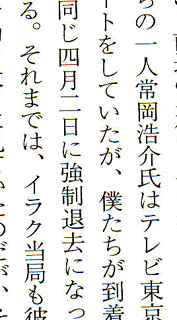 ちの一人常岡浩介氏はテレビ東京
ートをしていたが、僕たちが到着
同じ四月二日に強制退去になっ
る。それまでは、イラク当局も彼